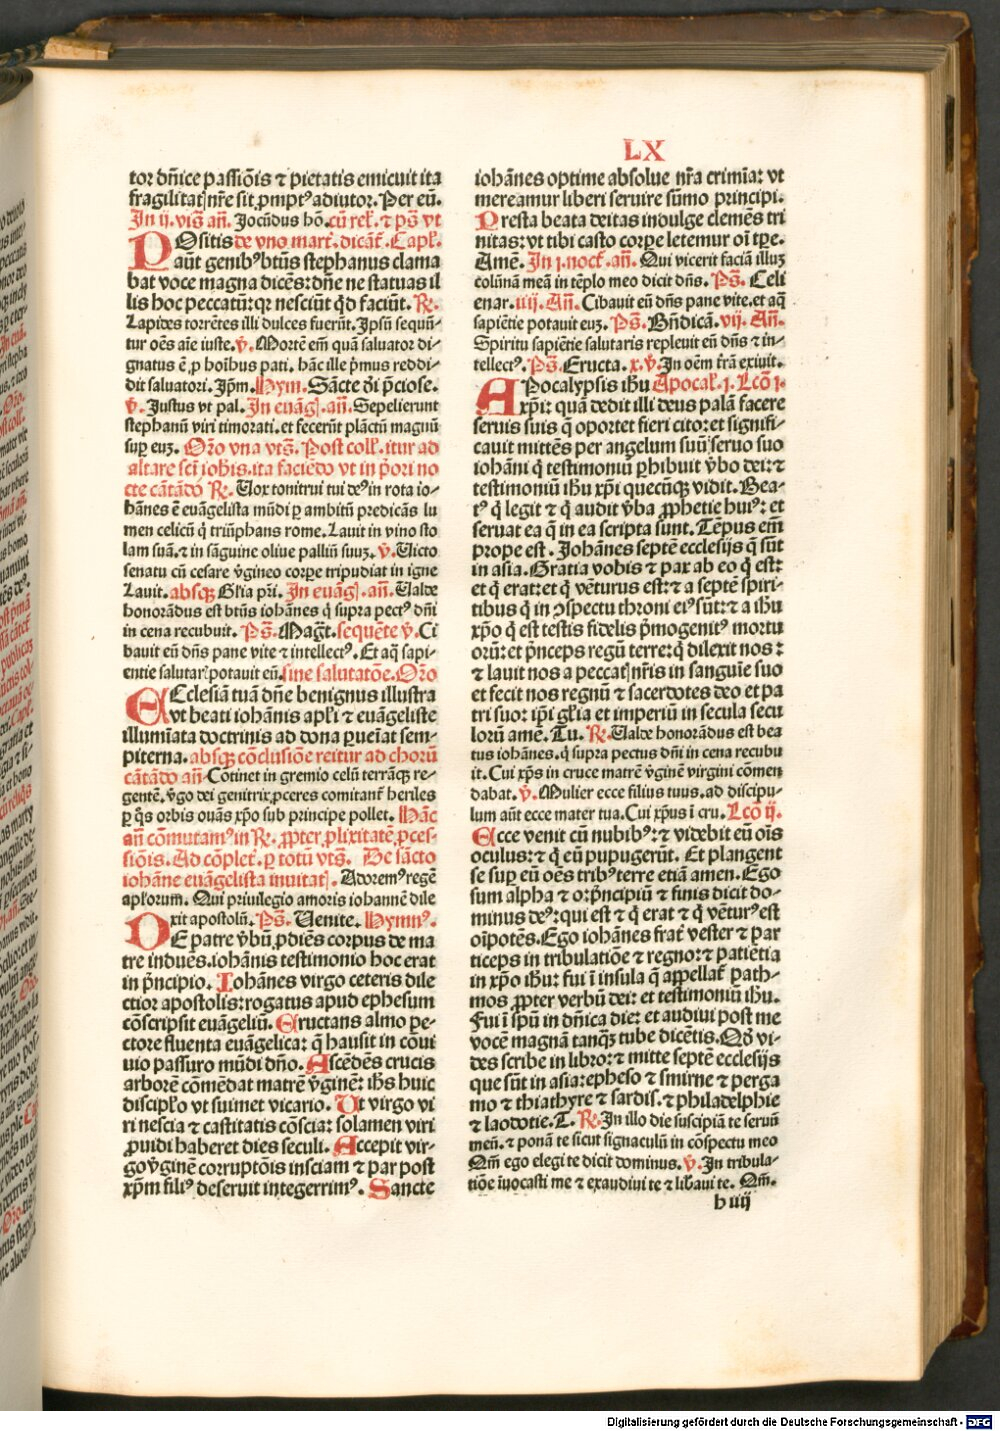 LX
tor dñice passiõis ⁊ pietatis emicuit ita
fragilitatʒ nr̄e sit ꝓmptꝰ adiutor. Per eũ.
In ij. visꝭ añ. Jocũdus hõ. cũ rel̃. ⁊ pꝭ vt
POsitis de vno mart̃. dicãt̃. Capl̃.
aũt genibꝰ btũs stephanus clama
bat voce magna dicẽs: dñe ne statuas il
lis hoc peccatũ: qꝛ nesciũt qd̃ faciũt. ℟.
Lapides torrẽtes illi dulces fuerũt. Ipsũ sequũ-
tur oẽs aĩe iuste. ℣. Mortẽ em̃ quã saluator di-
gnatus ẽ ꝓ hoĩbus pati. hãc ille pͥmus reddi-
dit saluatori. Ip̃m. Hym. Sãcte di p̃ciose.
℣. Justus vt pal. In euãgʒ. añ. Sepelierunt
stephanũ viri timorati. et fecerũt plãctũ magnũ
suꝑ euʒ. Or̃o vna vtꝭ. Post coll̃. itur ad
altare sct̃i ioh̃is. ita faciẽdo vt in p̃ori no
cte cãtãdo ℟. Uox tonitrui tui deꝰ in rota io-
hãnes ẽ euãgelista mũdi ꝑ ambitũ predicãs lu
men celicũ q̇ triũphans rome. Lauit in vino sto
lam suã. ⁊ in sãguine oliue palliũ suuʒ. ℣. Uicto
senatu cũ cesare v̾gineo corpe tripudiat in igne
Lauit. absqʒ Gl̃ia pr̃i. In euãgʒ. añ. Ualde
honorãdus est btũs iohãnes q̇ supra pectꝰ dñi
in cena recubuit. Pꝭ. Magt̃. sequẽte ℣. Ci
bauit eũ dñs pane vite ⁊ intellectꝰ. Et aq̃ sapi-
entie salutarꝭ potauit eũ. sine salutatõe. Or̃o
ECclesiã tuã dñe benignus illustra
vt beati iohãnis apl̃i ⁊ euãgeliste
illumĩata doctrinis ad dona ꝑueĩat sem-
piterna. absqʒ cõclusiõe reitur ad chorũ
cãtãdo añ Cõtinet in gremio celũ terrãqʒ re-
gentẽ. v̾go dei genitrix ꝓceres comitant̃ heriles
ꝑ q̃s orbis ouãs xp̃o sub principe pollet. Hãc
añ cõmutamꝰ in ℟. ꝓpter ꝓlixitatẽ ꝓces-
siõis. Ad cõplet̃. ꝑ totũ vtꝭ. De sãcto
iohãne euãgelista inuitatʒ. Adoremꝰ regẽ
apl̃orum. Qui priuilegio amoris iohannẽ dile
xit apostolũ. Pꝭ. Uenite. Hymnꝰ.
DE patre v̾bũ ꝓdiẽs corpus de ma
tre induẽs. iohãnis testimonio hoc erat
in pͥncipio. Iohãnes virgo ceteris dile
ctior apostolis: rogatus apud ephesum
cõscripsit euãgeliũ. Eructans almo pe-
ctore fluenta euãgelica: q̃ hausit in cõui
uio passuro mũdi dño. Ascẽdẽs crucis
arborẽ cõmẽdat matrẽ v̾ginẽ: ih̃s huic
discipl̃o vt suimet vicario. Ut virgo vi
ri nescia ⁊ castitatis cõscia: solamen viri
ꝓuidi haberet dies seculi. Accepit vir-
go v̾ginẽ corruptõis insciam ⁊ par post
xp̃m filiꝰ deseruit integerrimꝰ. Sancte
iohãnes optime absolue nr̃a crimĩa: vt
mereamur liberi seruire sũmo principi.
Presta beata deitas indulge clemẽs tri
nitas: vt tibi casto corpe letemur oĩ tp̃e.
Amẽ. In j. noct̃. añ. Qui vicerit faciã illuʒ
colũnã meã in tẽplo meo dicit dñs. Pꝭ. Celi
enar. iiij. Añ. Cibauit eũ dñs pane vite. et aq̃
sapiẽtie potauit euʒ. Pꝭ. Bñdicã. vij. Añ.
Spiritu sapiẽtie salutaris repleuit eũ dñs ⁊ in-
tellectꝰ. Pꝭ. Eructa. x. ℣. In oẽm tr̃ã exiuit.
APocalypsis ihũ Apocal̃. j. Lcõ j.
xp̃i: quã dedit illi deus palã facere
seruis suis q̃ oportet fieri cito: et signifi-
cauit mittẽs per angelum suũ seruo suo
iohãni q̇ testimoniũ ꝑhibuit v̾bo dei: ⁊
testimoniũ ihũ xp̃i quecũqʒ vidit. Bea-
tꝰ q̇ legit ⁊ q̇ audit v̾ba ꝓphetie huiꝰ: et
seruat ea q̃ in ea scripta sunt. Tẽpus em̃
prope est. Johãnes septẽ ecclesijs q̃ sũt
in asia. Gratia vobis ⁊ pax ab eo q̇ est:
et q̇ erat: et q̇ vẽturus est: ⁊ a septẽ spiri-
tibus q̃ in ↄspectu throni eiꝰ sũt: ⁊ a ihũ
xp̃o q̇ est testis fidelis pͥmogenitꝰ mortu
orũ: et pͥnceps regũ terre: q̇ dilexit nos:
⁊ lauit nos a peccatʒ nr̃is in sanguĩe suo
et fecit nos regnũ ⁊ sacerdotes deo et pa
tri suo: ip̃i gl̃ia et imperiũ in secula secu
lorũ amẽ. Tu. ℟. Ualde honorãdus est bea
tus iohãnes. q̇ supra pectus dñi in cena recubu
it. Cui xp̃s in cruce matrẽ v̾ginẽ virgini cõmen
dabat. ℣. Mulier ecce filius tuus. ad discipu-
lum aũt ecce mater tua. Cui xp̃us ĩ cru. Lcõ ij.
Ecce venit cũ nubibꝰ: ⁊ videbit eũ oĩs
oculus: ⁊ q̇ eũ pupugerũt. Et plangent
se suꝑ eũ oẽs tribꝰ terre etiã amen. Ego
sum alpha ⁊ o: pͥncipiũ ⁊ finis dicit do-
minus deꝰ: qui est ⁊ q̇ erat ⁊ q̇ vẽturꝰ est
oĩpotẽs. Ego iohãnes frat̃ vester ⁊ par
ticeps in tribulatiõe ⁊ regno: ⁊ patiẽtia
in xp̃o ihũ: fui ĩ insula q̃ appellat̃ path-
mos ꝓpter verbũ dei: et testimoniũ ihũ.
Fui ĩ sp̃u in dñica die: et audiui post me
vocẽ magnã tanqʒ tube dicẽtis. Qd̃ vi-
des scribe in libro: ⁊ mitte septẽ ecclesijs
que sũt in asia: epheso ⁊ smirne ⁊ perga
mo ⁊ thiathyre ⁊ sardis. ⁊ philadelphie
⁊ laodotie. T. ℟. In illo die suscipiã te seruũ
meũ. ⁊ ponã te sicut signaculũ in cõspectu meo
Qm̃ ego elegi te dicit dominus. ℣. In tribula-
tiõe ĩuocasti me ⁊ exaudiui te ⁊ lib̾aui te. Qm̃.
h iiij
Digitalisierung gefördert durch die Deutsche Forschungsgemeinschaft - DFG